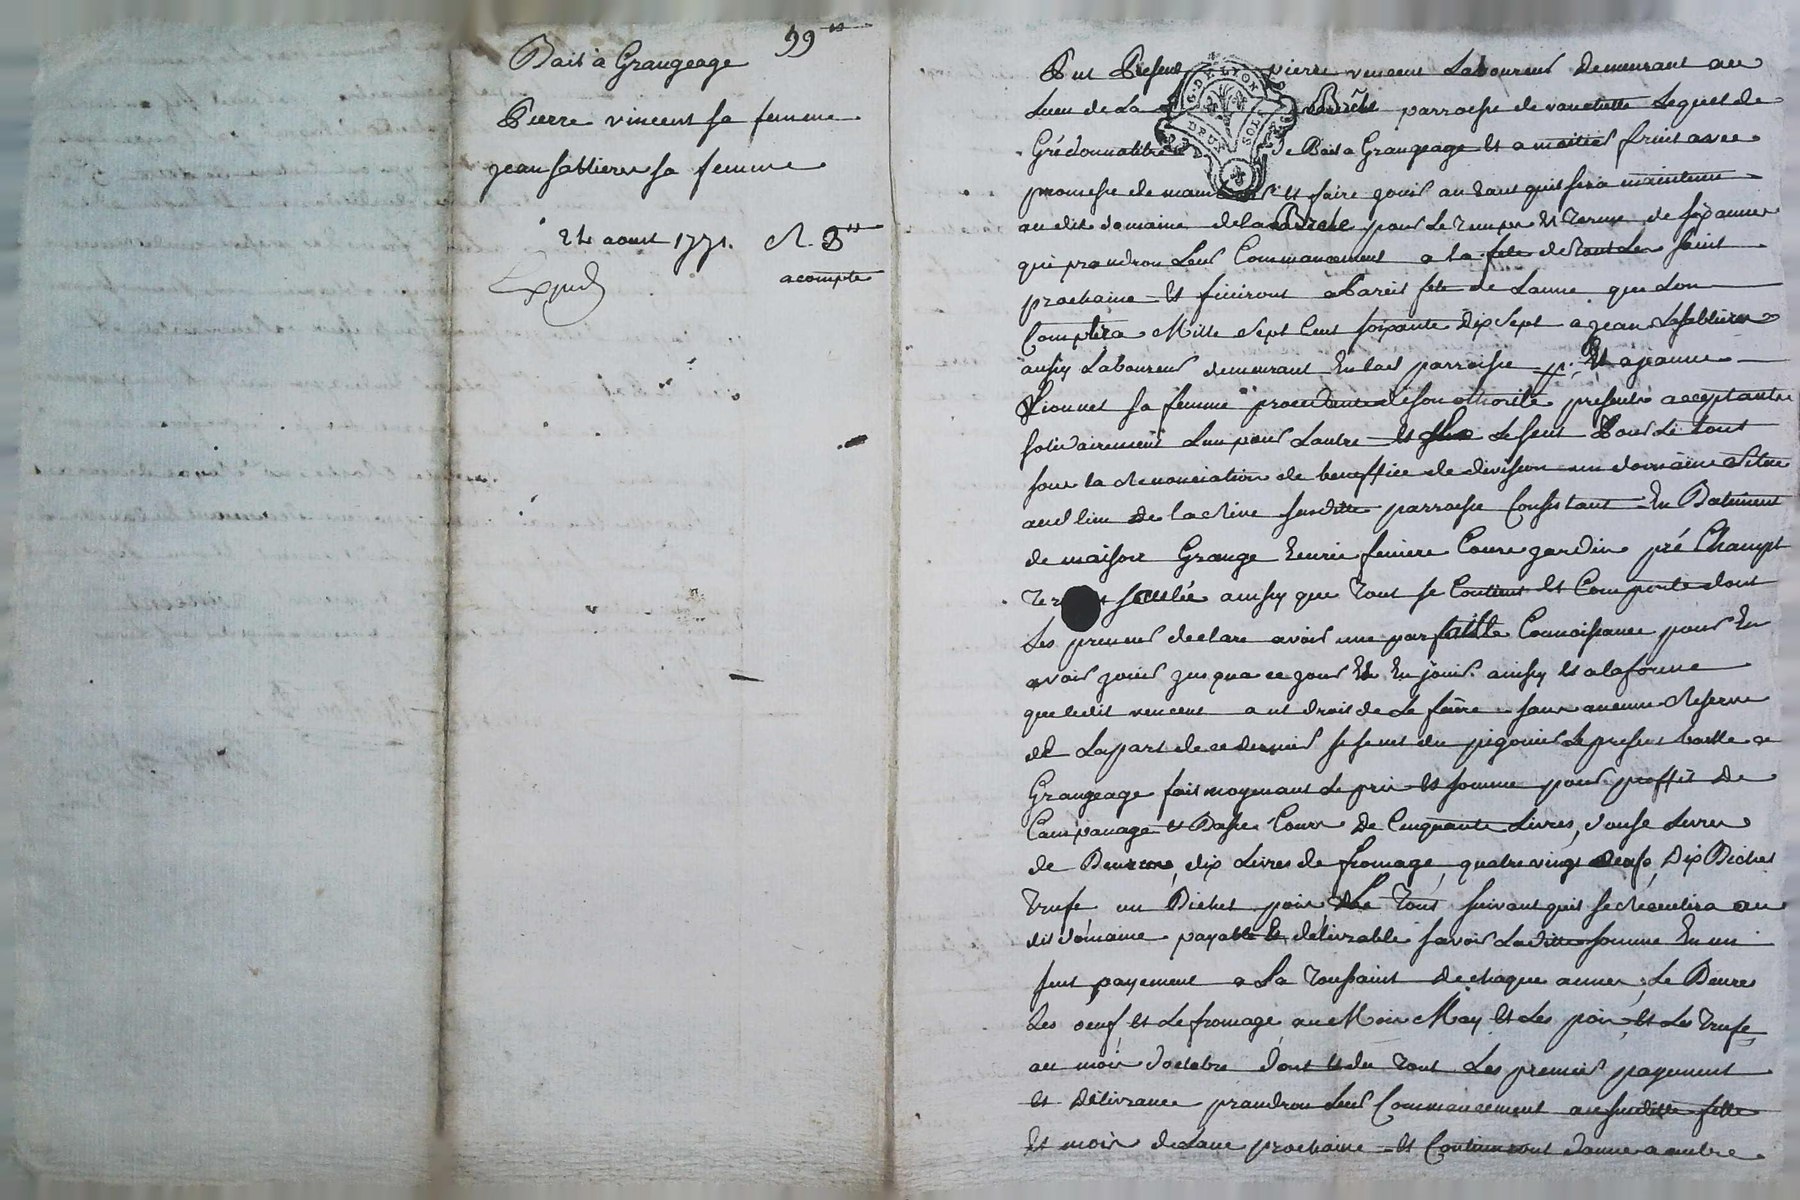 99
Bail à Grangeage
Pierre vincent sa femme
jean sablieres sa femme
24 aoust 1771. R. 3ᵗᵗ
acompte
Expᵈ
G. DE LYON
DEUX SOLS
Fut Present pierre vincent Laboureur demeurant au
Lieu de La parroisse de Lequel de
Gré donna titre de Bail a Grangeage et a moities fruit avec
promesse de et faire jouir autant quil sera maintenu
audit domaine de la pour Le temps et terme de six année
qui prandron Leur Commancement a la fete de tout Les Saint
prochaine et finiront a Pareil fete de Lanné que Lon
Comptera Mille Sept Cent soixante dix sept a jean Lasablieres
aussy Laboureur demeurant parroisse et a jeanne
sa femme procedante de son othorité presente acceptante
solidairement Lun pour Lautre et Le seul Pour Le tout
sous la Renonciation de beneffice de division un domaine Situé
audlieu de susditte parroisse Consistant En Batiment
de maison Grange Eurie feniere Cour jardin pré Champt
ainsy que tout se Contient et Comporte dont
Les preneur declare avoir une parfaitte Connoissance pour En
avoir jouir jusqua ce jour Et En jouir ainsy et a la forme
que ledit vencent a ut droit de Le faire sans aucune Reserve
de La part de ce dernier Le present
Grangeage fait moyenant Le prix et somme pour proffit de
Campanage et Basse Cour de Cinquante Livres, douse Livres
de Beurre, dix Livres de fromage, quatre vingt oeufs, Dix Bichet
trufe un Bichet pois Le tout suivant quil se Recultira au
dit domaine payable et délivrable savoir La ditte somme En un
seul payement a La toussaint de chaque année, Le Beurre
Les oeuf et Le fromage au Mois May et Les pois et Les trufe
au mois doctobre dont et du tout Les premier payement
et délivrance prandron Leur Commancement au susditte fette
et mois de Lanné prochaine et Continuront danné a autre